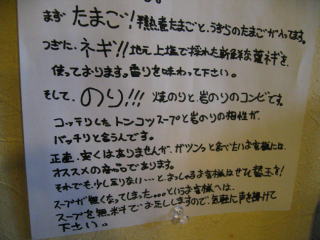 まず たまご! 半熟煮たまごと、うずらのたまごが入ってます。
つぎに、ネギ!! 地元 上塩で採れた新鮮な葉ネギを、
使っております。香りを味わって下さい。
そして、のり!!! 焼のりと岩のりのコンビです。
コッテリした トンコツスープと岩のりの相性が、
バッチリと合うんです。
正直、安くはありませんが、ガツンと食べたいお客様には、
オススメの 一品であります。
それでも、少し足りない…と、おっしゃるお客様はぜひ替玉を!
スープが無くなってしまった。。。というお客様へは、
スープを無料でお足ししますので、気軽に声を掛けて
下さい。